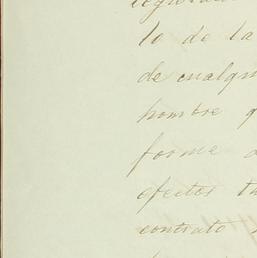 lo de la
de cualqu
hombre q
forme a
efectos th
contrato